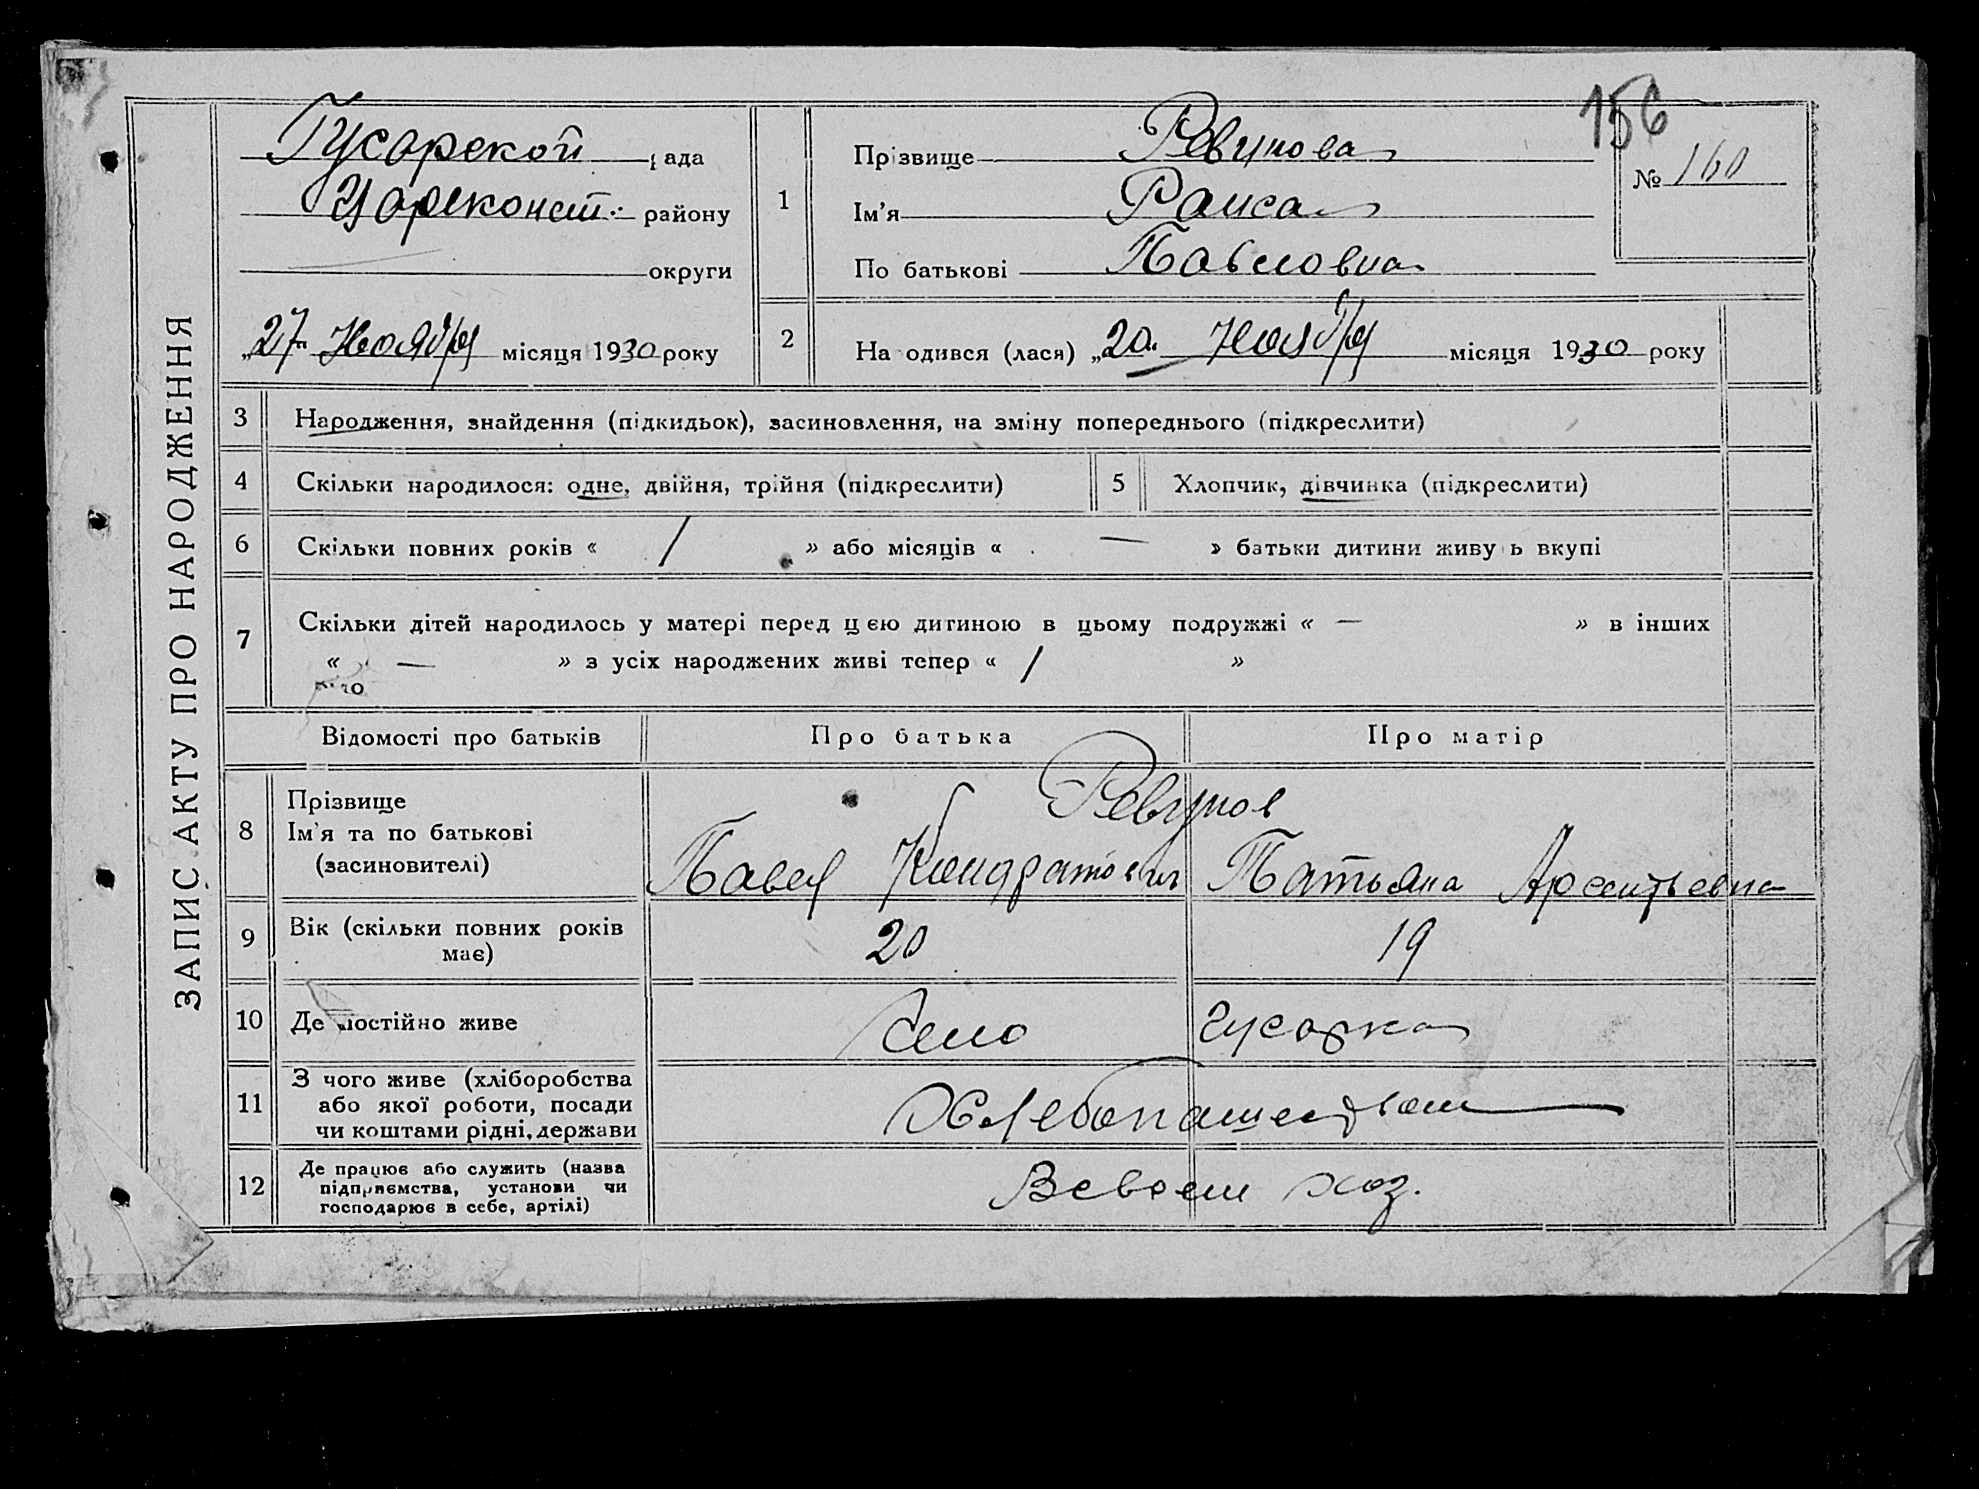 ЗАПИС АКТУ ПРО НАРОДЖЕННЯ
156
Гусарской рада
Цареконст. району
округи
„27" Ноября місяця 1930 року
1
Прізвище Ревунова
Ім’я Раиса
По батькові Павловна
№ 160
2
На одився (лася) „20" Ноября місяця 1930 року
3 Народження, знайдення (підкидьок), засиновлення, на зміну попереднього (підкреслити)
4 Скільки народилося: одне, двійня, трійня (підкреслити) 5 Хлопчик, дівчинка (підкреслити)
6 Скільки повних років « / » або місяців « — » батьки дитини живу ь вкупі
7 Скільки дітей народилось у матері перед цією дитиною в цьому подружжі « — » в інших
« — » з усіх народжених живі тепер « / »
Відомості про батьків Про батька Про матір
8 Прізвище
Ім’я та по батькові
(засиновителі)
Ревунов
Павел Кондратович Татьяна Арсентьевна
9 Вік (скільки повних років
має)
20 19
10 Де постійно живе Село Гусарка
11 З чого живе (хліборобства
або якої роботи, посади
чи коштами рідні, держави
Хлебопашеством
12 Де працює або служить (назва
підприємства, установи чи
господарює в себе, артілі)
Всвоем хоз.